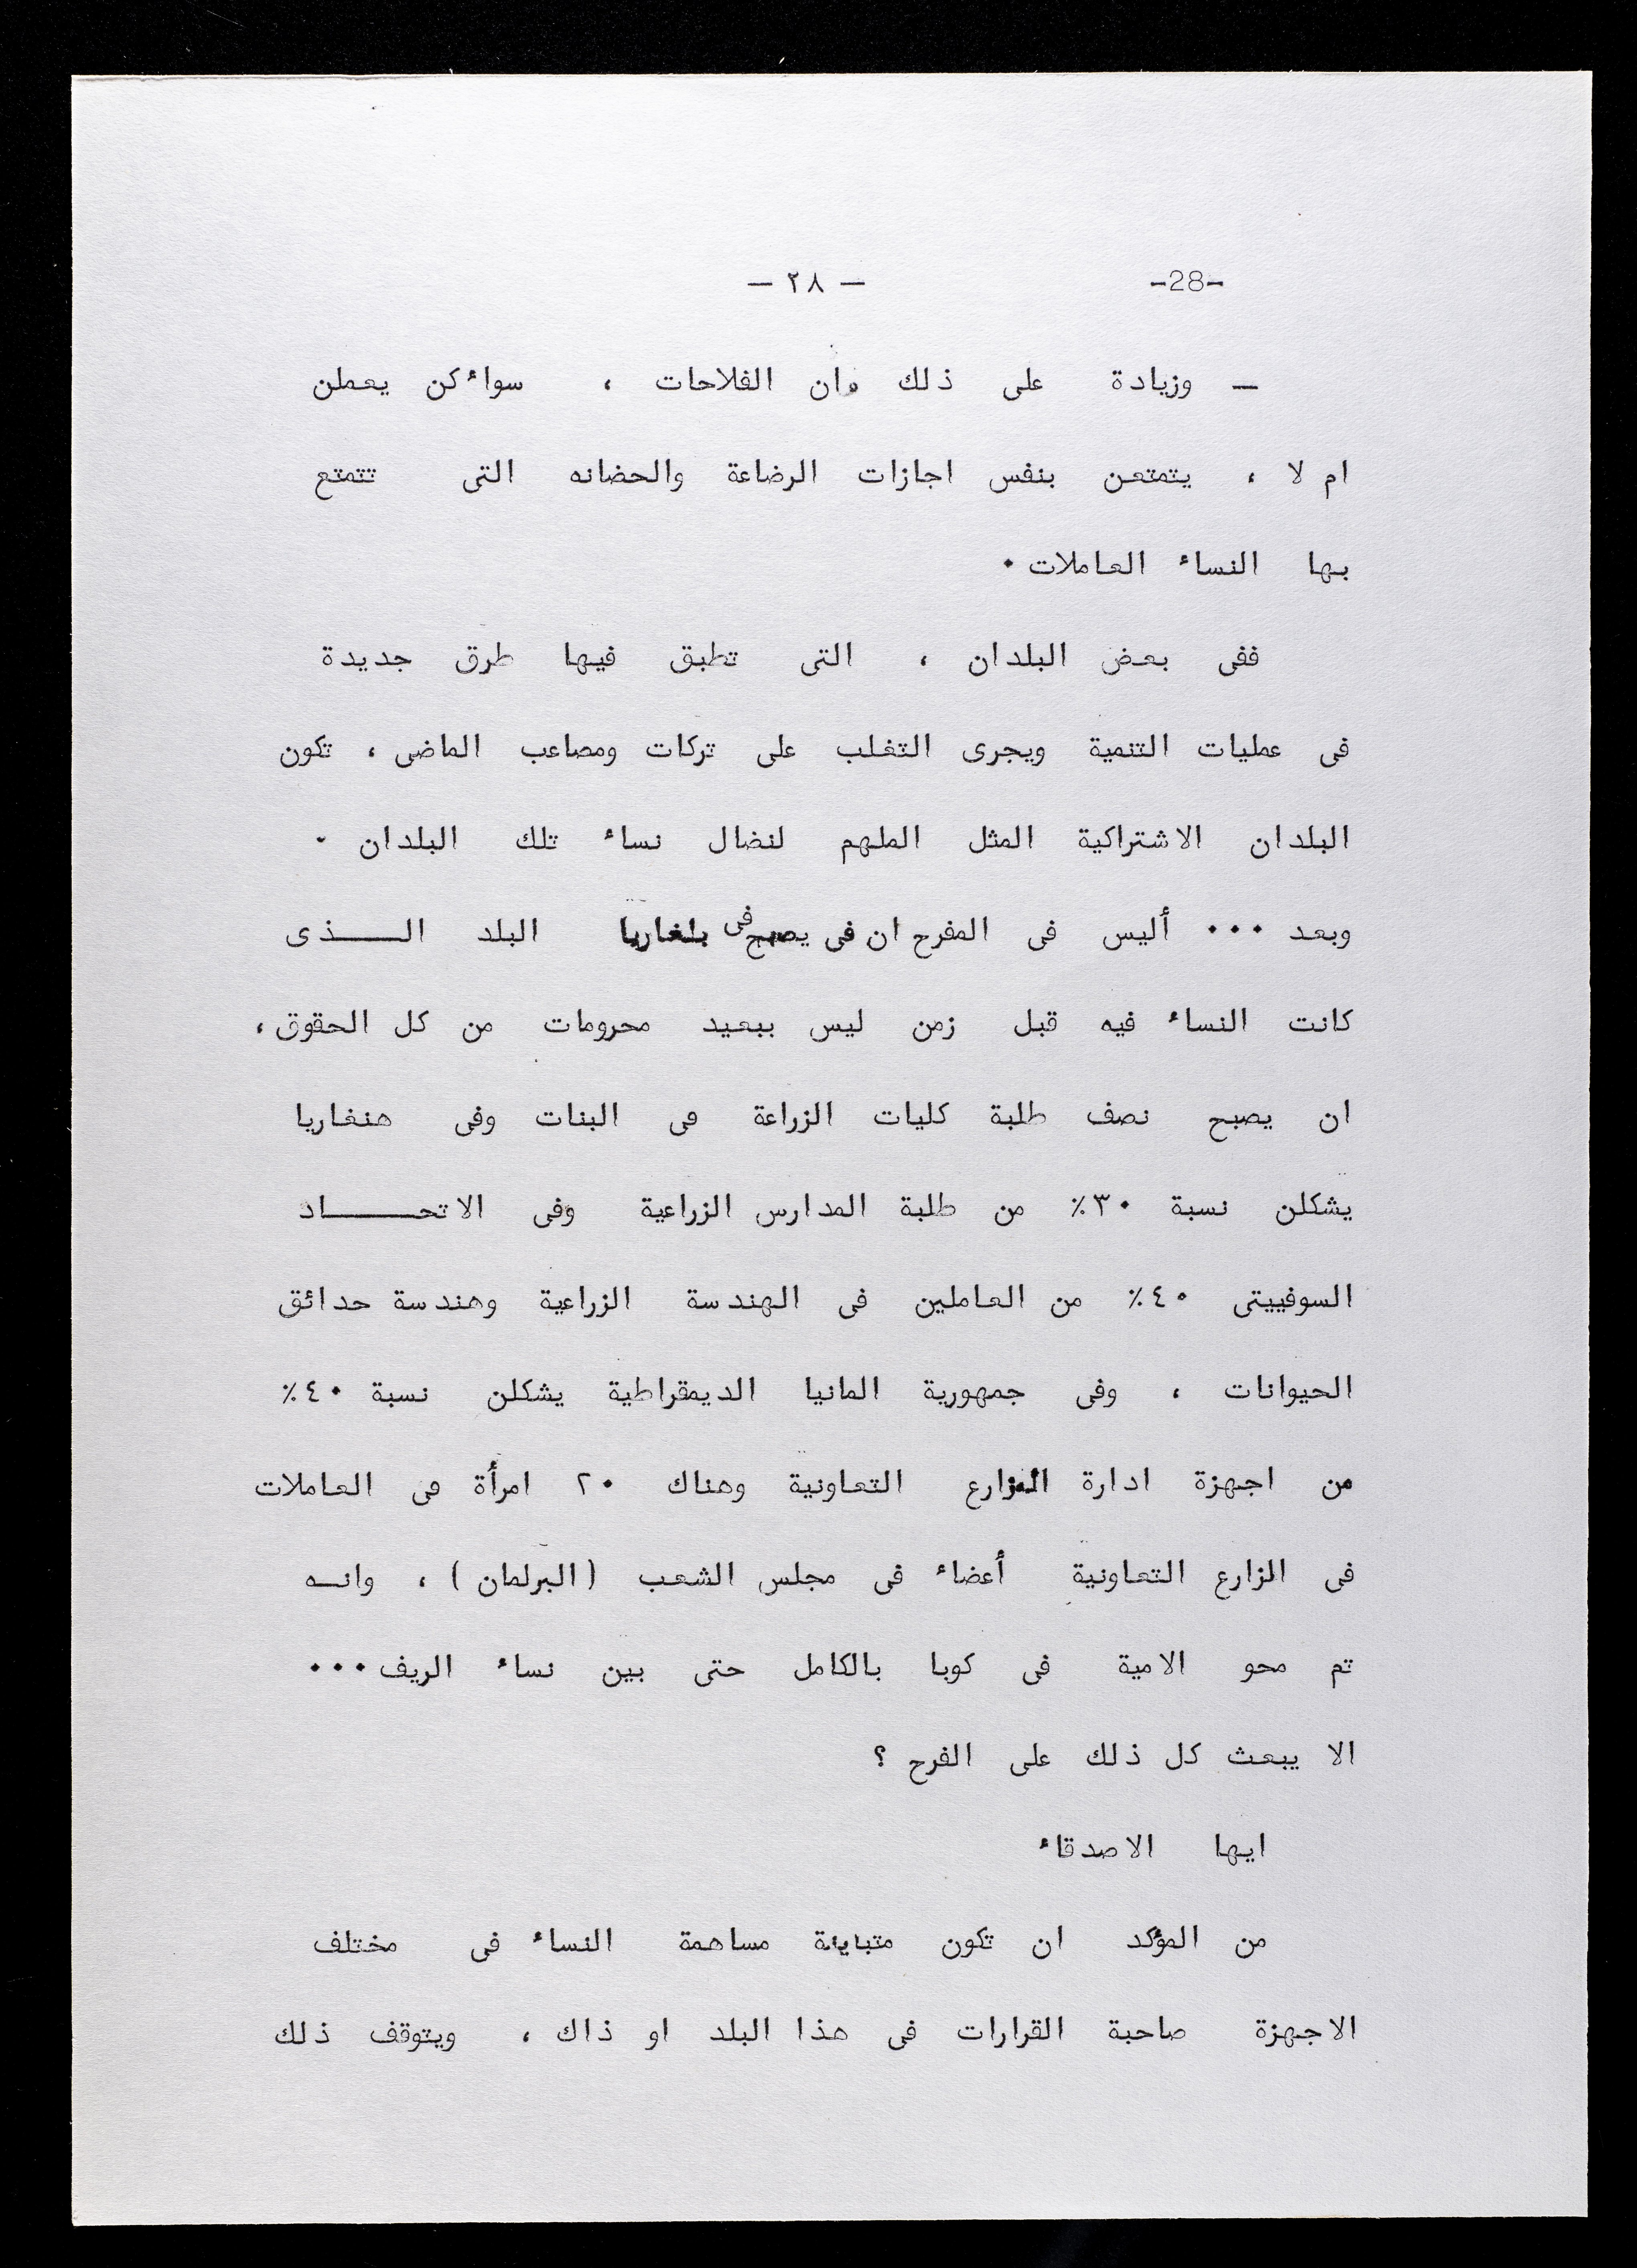 -28-
— ٢٨ —
— وزيادة على ذلك وان الفلاحات ، سواء كن يعملن
ام لا ، يتمتعن بنفس اجازات الرضاعة والحضانه التى تتمتع
بها النساء العاملات ٠
ففى بعض البلدان ، التى تطبق فيها طرق جديدة
فى عمليات التنمية ويجرى التغلب على تركات ومصاعب الماضى ، تكون
البلدان الاشتراكية المثل الملهم لنضال نساء تلك البلدان ٠
وبعد ٠٠٠ أليس فى المفرح ان فى يصبح فى بلغاريا البلد الـــذى
كانت النساء فيه قبل زمن ليس ببعيد محرومات من كل الحقوق ،
ان يصبح نصف طلبة كليات الزراعة من البنات وفى هنغاريا
يشكلن نسبة ٣٠٪ من طلبة المدارس الزراعية وفى الاتحـــــاد
السوفييتى ٤٠٪ من العاملين فى الهندسة الزراعية وهندسة حدائق
الحيوانات ، وفى جمهورية المانيا الديمقراطية يشكلن نسبة ٤٠٪
من اجهزة ادارة المزارع التعاونية وهناك ٢٠ امرأة من العاملات
فى المزارع التعاونية أعضاء فى مجلس الشعب (البرلمان) ، وانـه
تم محو الامية فى كوبا بالكامل حتى بين نساء الريف ٠٠٠
الا يبعث كل ذلك على الفرح ؟
ايها الاصدقاء
من المؤكد ان تكون متباينة مساهمة النساء فى مختلف
الاجهزة صاحبة القرارات فى هذا البلد او ذاك ، ويتوقف ذلك